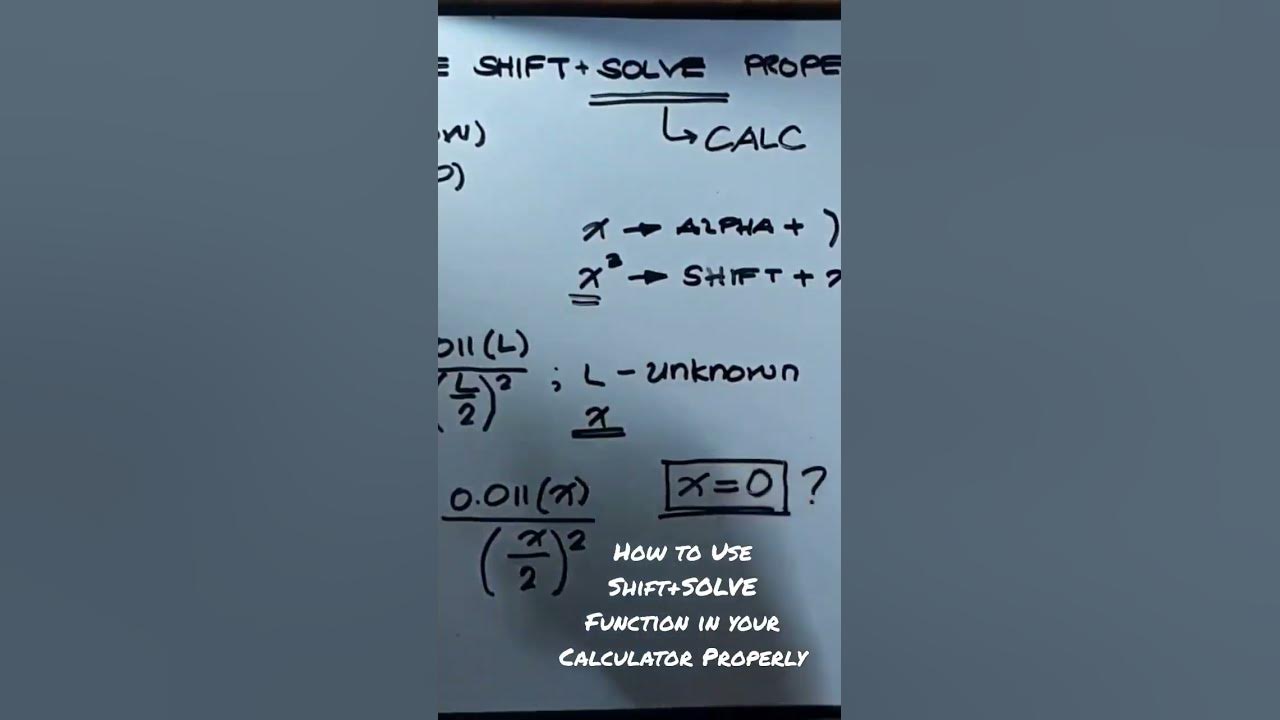 SHIFT + SOLVE PROPE
CALC
x → ALPHA + )
x³ → SHIFT +
011(L)
(L/2)² ; L - unknown
x
0.011(x)
(x/2)²
x = 0 ?
How to Use
Shift+SOLVE
Function in your
Calculator Properly